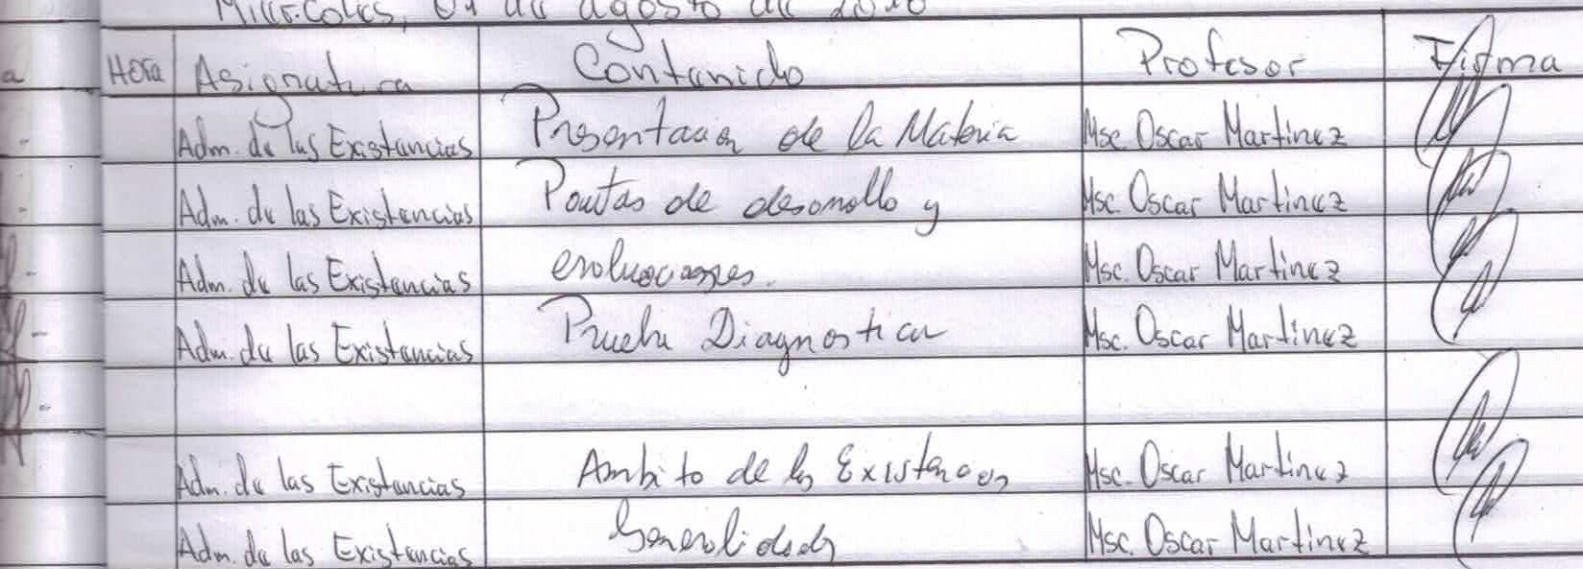 Miercoles, 04 de agosto de 2010
Hora Asignatura Contenido Profesor Firma
Adm. de las Existencias Presentación de la Materia Msc. Oscar Martinez
Adm. de las Existencias Pautas de desarrollo y Msc. Oscar Martinez
Adm. de las Existencias evaluaciones. Msc. Oscar Martinez
Adm. de las Existencias Prueba Diagnostica Msc. Oscar Martinez
Adm. de las Existencias Ambito de las Existencias Msc. Oscar Martinez
Adm. de las Existencias Generalidades Msc. Oscar Martinez